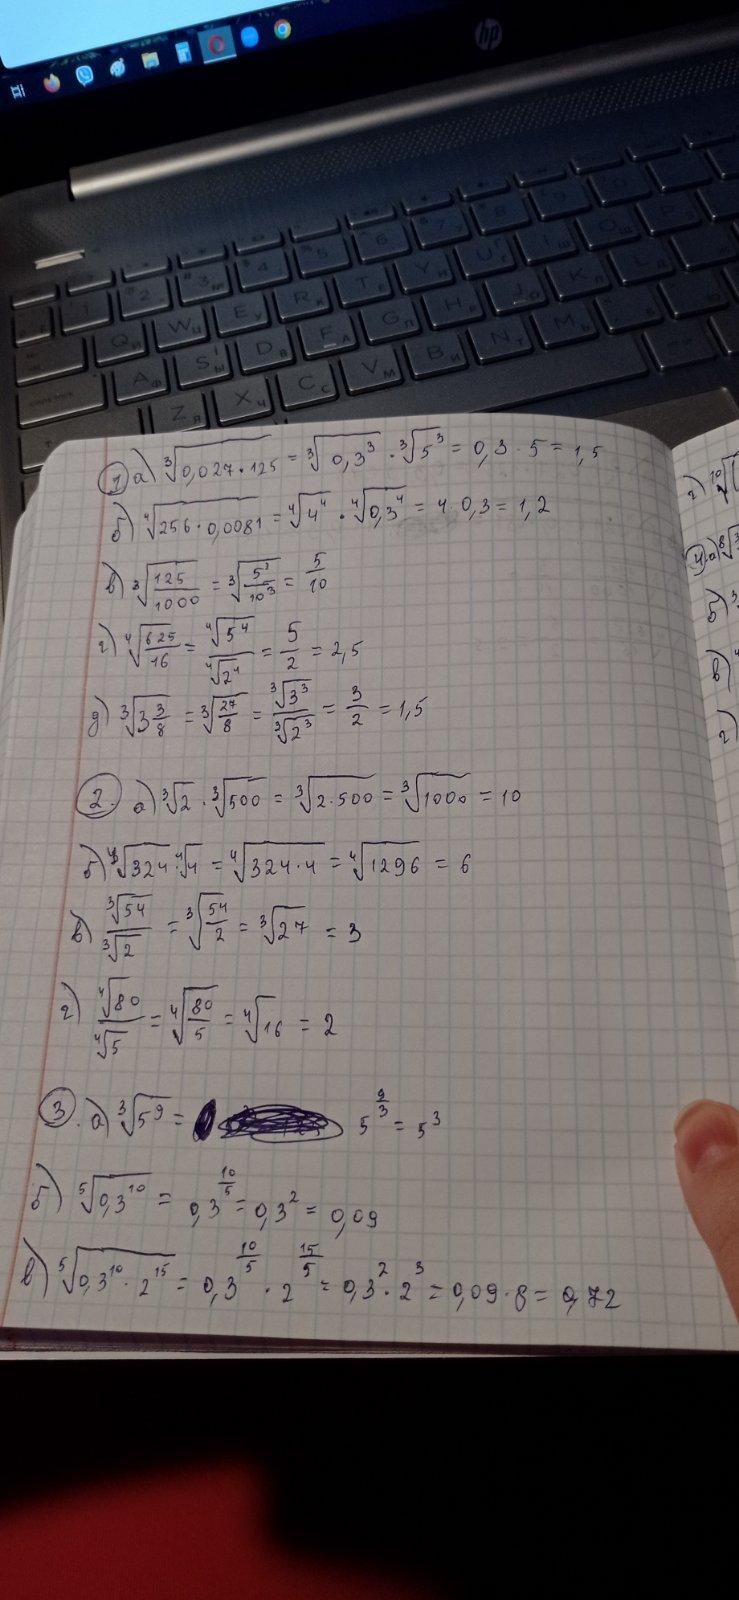 hp
1 а) ∛(0,027·125) = ∛(0,3³) · ∛(5³) = 0,3·5 = 1,5
б) ∜(256·0,0081) = ∜(4⁴) · ∜(0,3⁴) = 4·0,3 = 1,2
в) ∛(125/1000) = ∛(5³/10³) = 5/10
г) ∜(625/16) = ∜(5⁴)/∜(2⁴) = 5/2 = 2,5
д) ∛(3 3/8) = ∛(27/8) = ∛(3³)/∛(2³) = 3/2 = 1,5
2. а) ∛2 · ∛500 = ∛(2·500) = ∛1000 = 10
б) ∜324·∜4 = ∜(324·4) = ∜1296 = 6
в) ∛54/∛2 = ∛(54/2) = ∛27 = 3
г) ∜80/∜5 = ∜(80/5) = ∜16 = 2
3. а) ∛(5⁹) = 5^(9/3) = 5³
б) ⁵√(0,3¹⁰) = 0,3^(10/5) = 0,3² = 0,09
в) ⁵√(0,3¹⁰·2¹⁵) = 0,3^(10/5) · 2^(15/5) = 0,3²·2³ = 0,09·8 = 0,72
г) ¹⁰√
4. а) ⁸√
б)
в)
г)